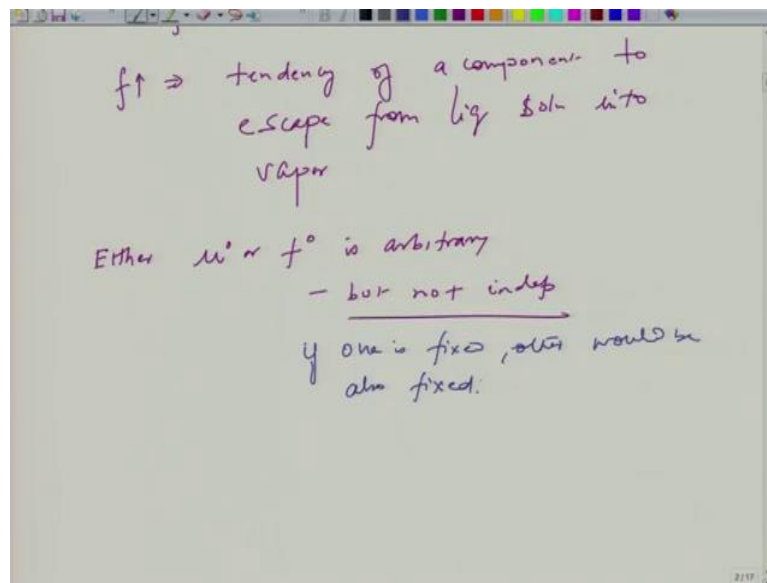 f↑ ⇒ tendency of a component to
escape from liq soln into
vapor
Either μ° or f° is arbitrary
- but not indep
if one is fixed, other would be
also fixed.
2/17